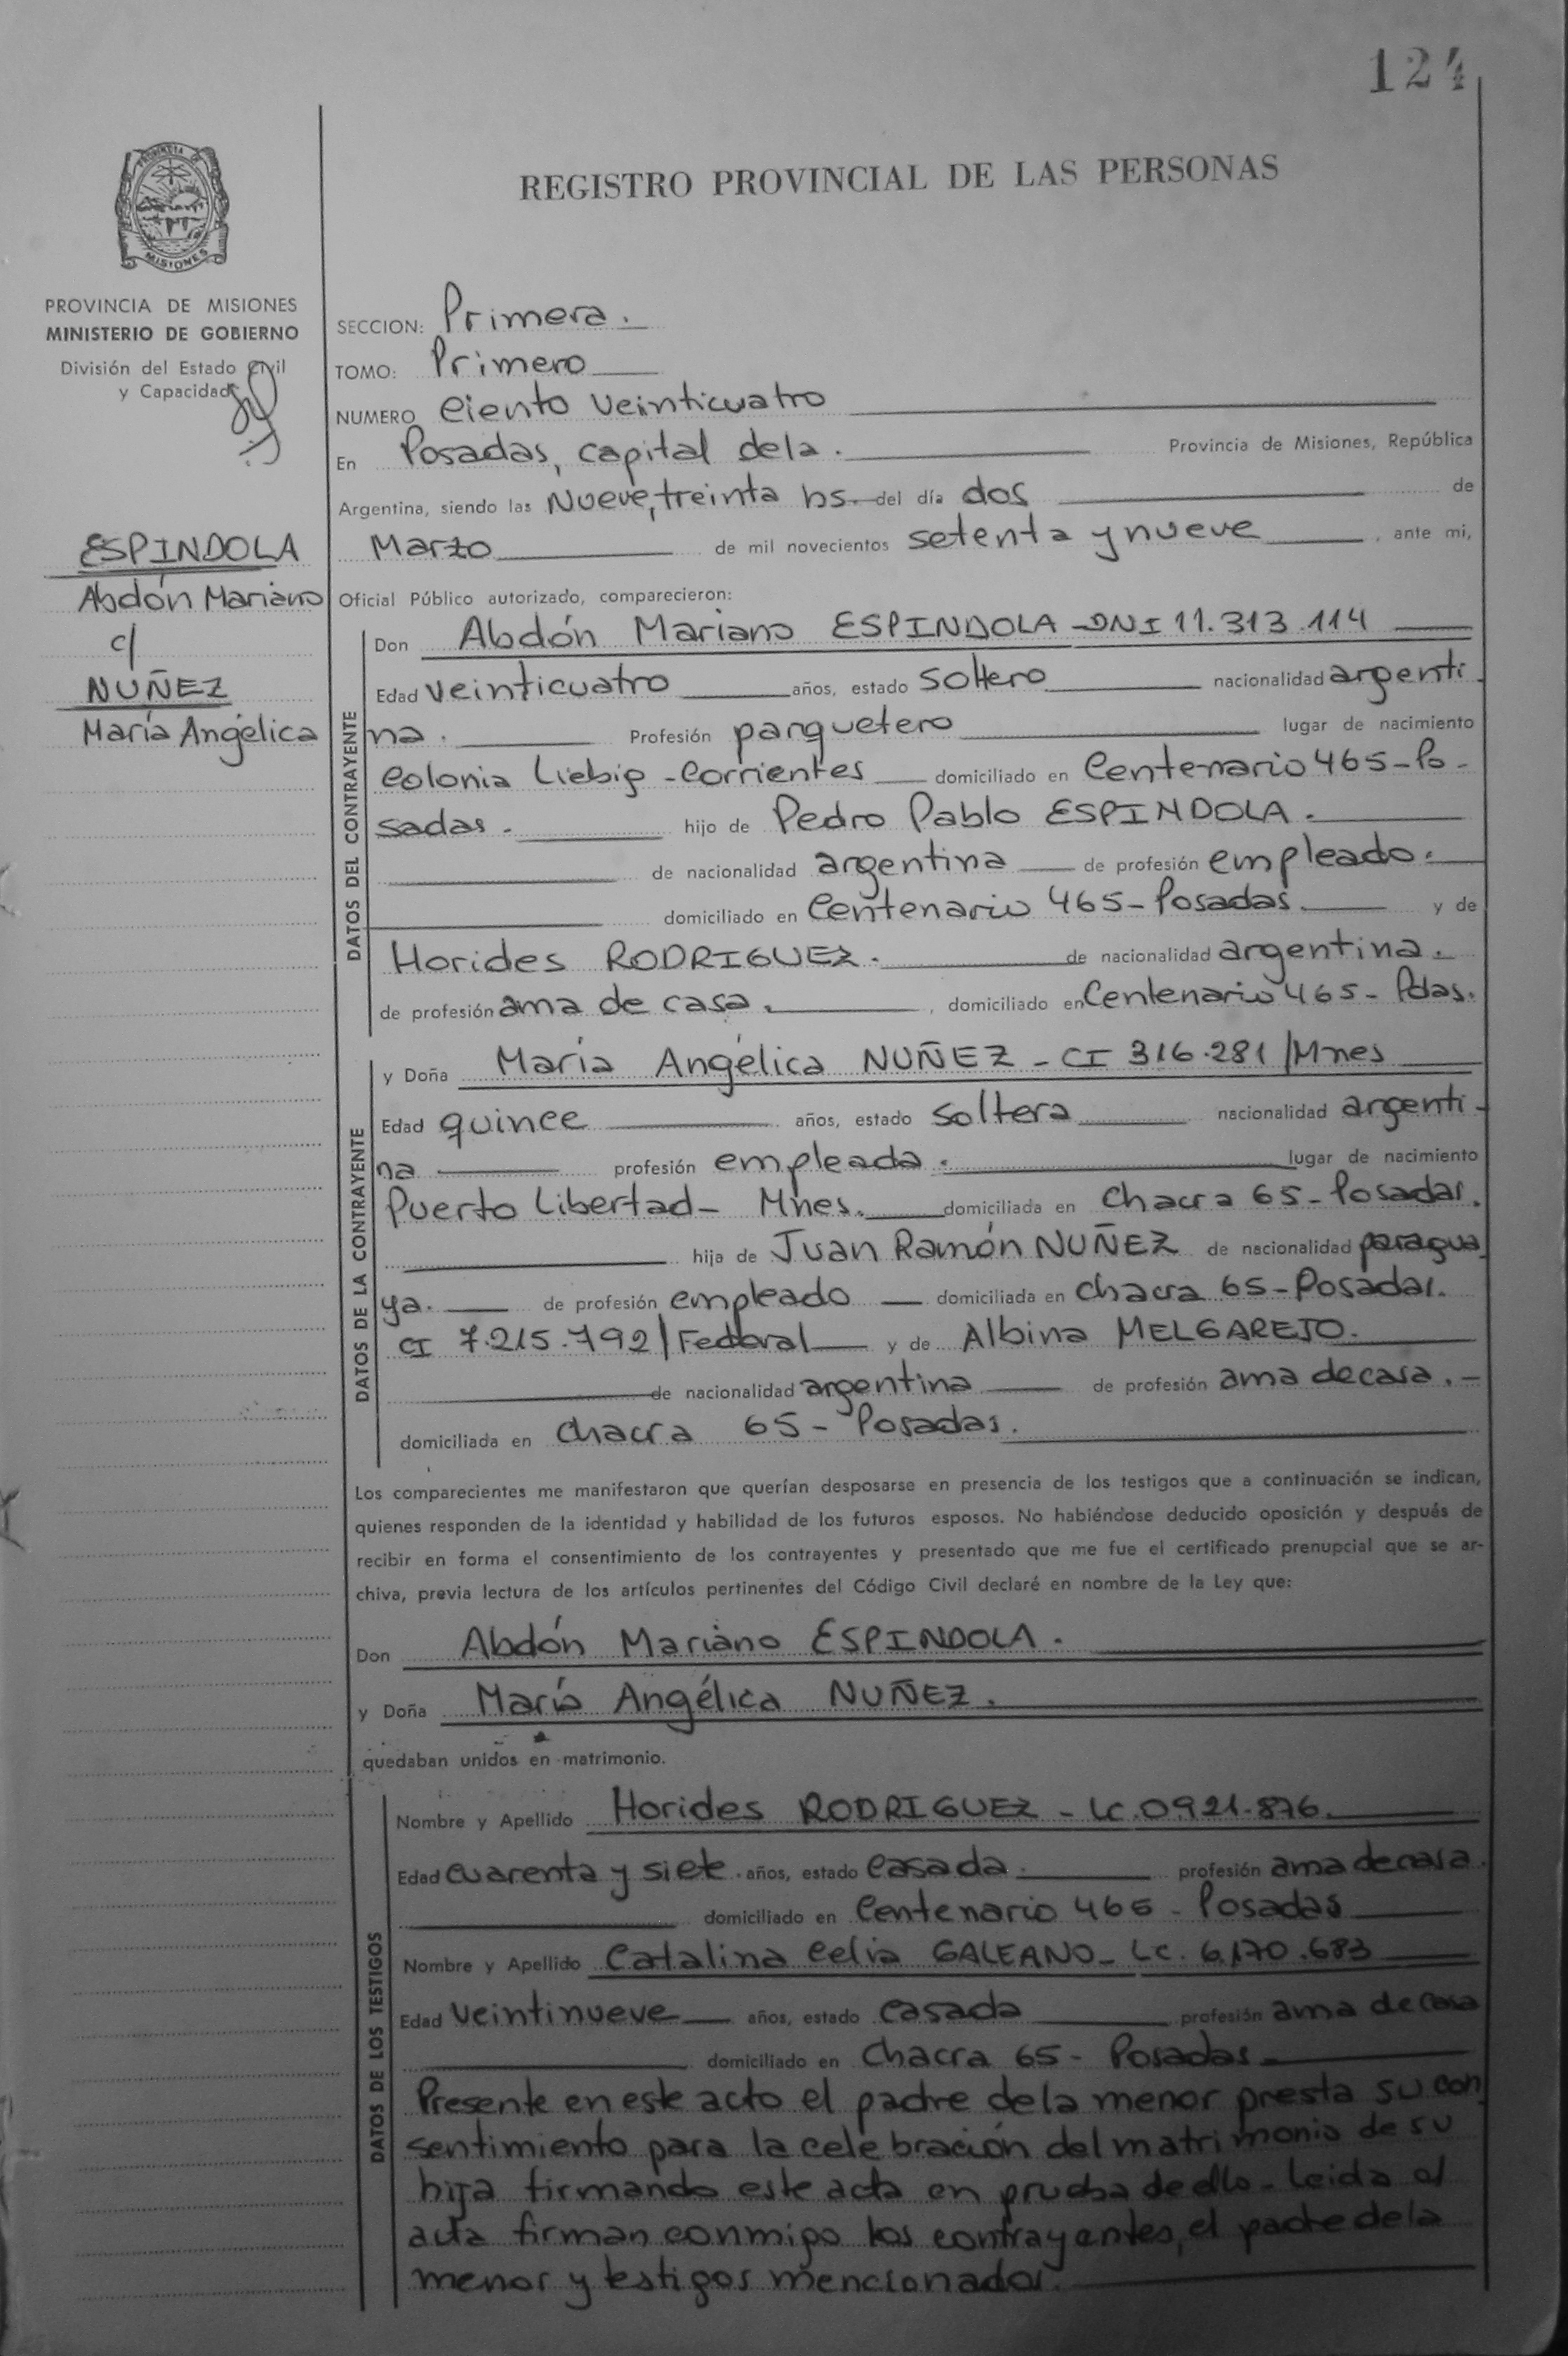 124
PROVINCIA DE
MISIONES
REGISTRO PROVINCIAL DE LAS PERSONAS
PROVINCIA DE MISIONES
MINISTERIO DE GOBIERNO
División del Estado Civil
y Capacidad
ESPINDOLA
Abdón Mariano
c/
NUÑEZ
María Angélica
SECCION: Primera.
TOMO: Primero
NUMERO Ciento Veinticuatro
En Posadas, capital de la. Provincia de Misiones, República
Argentina, siendo las Nueve, treinta hs. del día dos de
Marzo de mil novecientos setenta y nueve, ante mi,
Oficial Público autorizado, comparecieron:
DATOS DEL CONTRAYENTE
Don Abdón Mariano ESPINDOLA - DNI 11.313.114
Edad Veinticuatro años, estado soltero nacionalidad argenti
na. Profesión parquetero lugar de nacimiento
Colonia Liebig - Corrientes domiciliado en Centenario 465-Po-
sadas. hijo de Pedro Pablo ESPINDOLA.
de nacionalidad argentina de profesión empleado.
domiciliado en Centenario 465-Posadas. y de
Horides RODRIGUEZ. de nacionalidad argentina.
de profesión ama de casa., domiciliado en Centenario 465- Pdas.
DATOS DE LA CONTRAYENTE
y Doña María Angélica NUÑEZ - CI 316.281/Mnes
Edad quince años, estado soltera nacionalidad argenti-
na profesión empleada. lugar de nacimiento
Puerto Libertad- Mnes. domiciliada en Chacra 65-Posadas.
hija de Juan Ramón NUÑEZ de nacionalidad paragua
ya. de profesión empleado domiciliada en Chacra 65-Posadas.
CI 7.215.792/Federal y de Albina MELGAREJO.
de nacionalidad argentina de profesión ama de casa.-
domiciliada en Chacra 65- Posadas.
Los comparecientes me manifestaron que querían desposarse en presencia de los testigos que a continuación se indican,
quienes responden de la identidad y habilidad de los futuros esposos. No habiéndose deducido oposición y después de
recibir en forma el consentimiento de los contrayentes y presentado que me fue el certificado prenupcial que se ar-
chiva, previa lectura de los artículos pertinentes del Código Civil declaré en nombre de la Ley que:
Don Abdón Mariano ESPINDOLA.
y Doña María Angélica NUÑEZ.
quedaban unidos en matrimonio.
DATOS DE LOS TESTIGOS
Nombre y Apellido Horides RODRIGUEZ - LC.0.921.876.
Edad cuarenta y siete. años, estado Casada. profesión ama de casa.
domiciliado en Centenario 465 - Posadas
Nombre y Apellido Catalina Celia GALEANO- LC. 6.170.683
Edad Veintinueve años, estado Casada profesión ama de casa
domiciliado en Chacra 65- Posadas
Presente en este acto el padre de la menor presta su con
sentimiento para la celebración del matrimonio de su
hija firmando este acta en prueba de ello - Leida el
acta firman conmigo los contrayentes, el padre de la
menor y testigos mencionados.